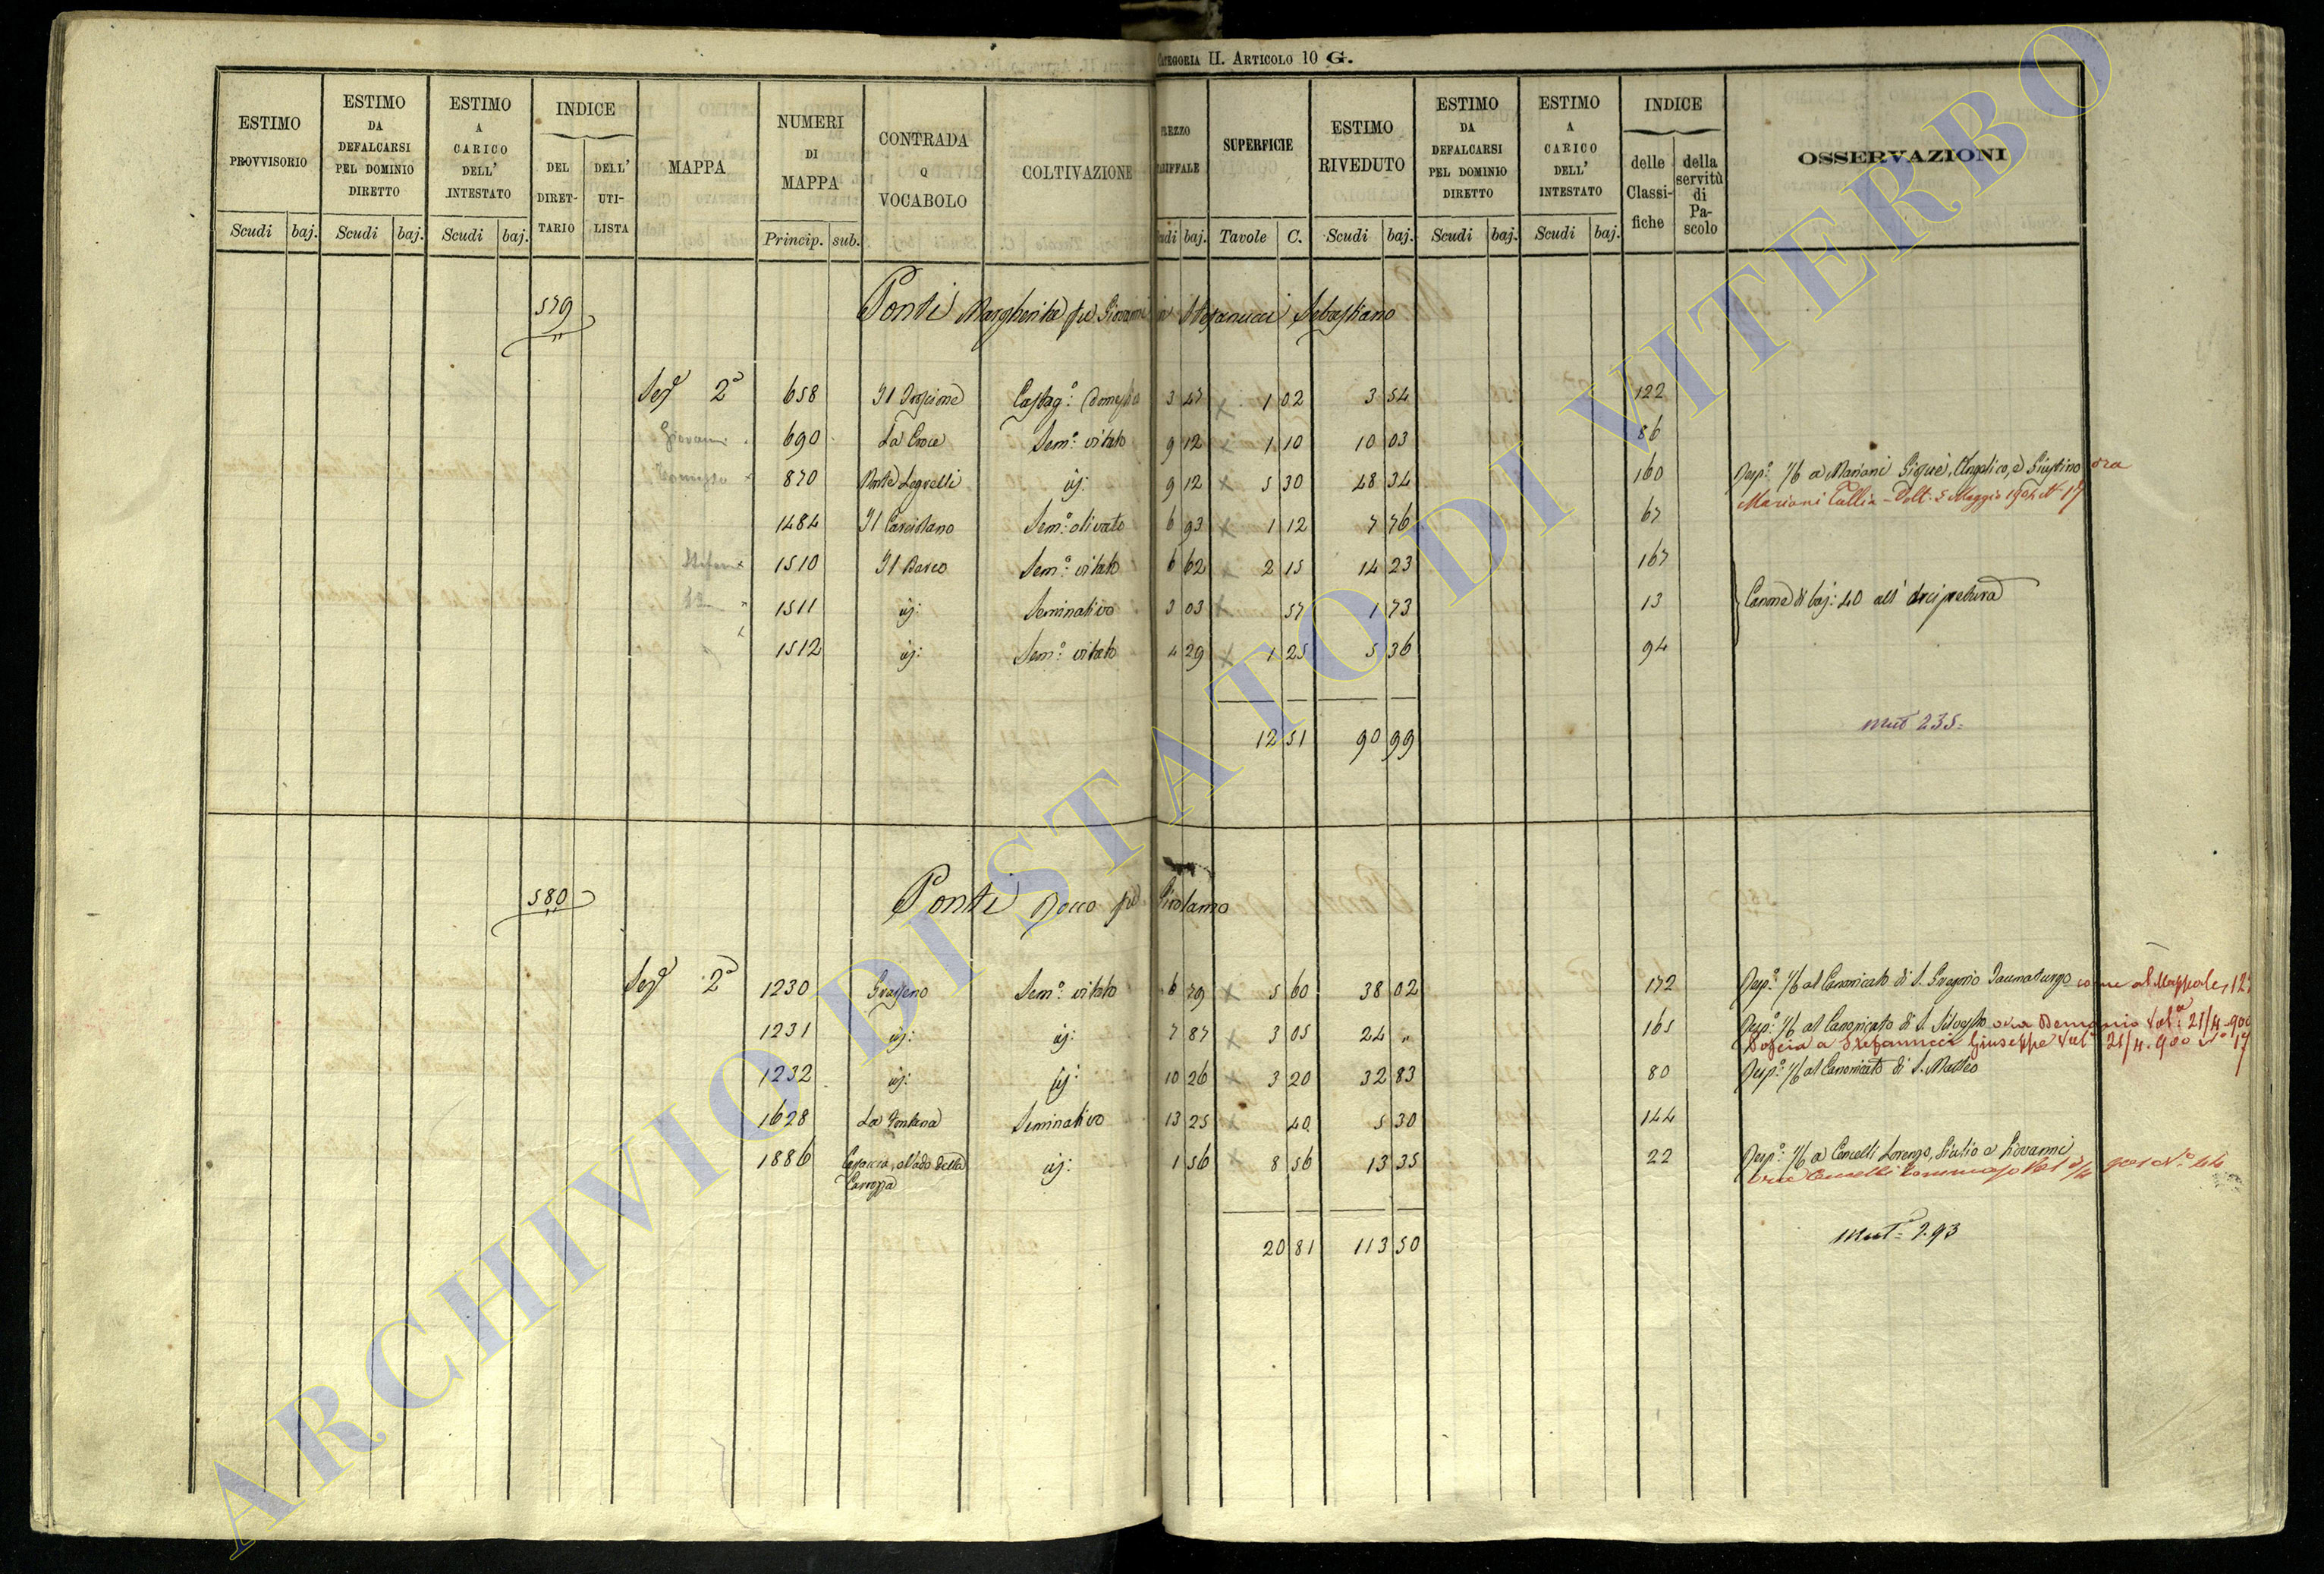 CATEGORIA II. ARTICOLO 10 G.
ESTIMO PROVVISORIO
Scudi baj.
ESTIMO DA DEFALCARSI PEL DOMINIO DIRETTO
Scudi baj.
ESTIMO A CARICO DELL' INTESTATO
Scudi baj.
INDICE
DEL DIRET-TARIO
DELL' UTI-LISTA
MAPPA
NUMERI DI MAPPA
Princip. sub.
CONTRADA O VOCABOLO
COLTIVAZIONE
SUPERFICIE
baj.
Tavole C.
ESTIMO RIVEDUTO
Scudi baj.
ESTIMO DA DEFALCARSI PEL DOMINIO DIRETTO
Scudi baj.
ESTIMO A CARICO DELL' INTESTATO
Scudi baj.
INDICE
delle Classi-fiche
della servitù di Pa-scolo
OSSERVAZIONI
579 Ponti Margherita fu Giovanni in Stefanucci Sebastiano
Sez.e 2a 658 Castag.o 3 47 1 02 3 54 122
Giovanni 690 La Croce Sem.o vitato 9 12 1 10 10 03 86
870 id: 9 12 5 30 48 34 160 Risp.a 1/6 a Mariani Giosuè, Angelico, e Giustino ora
Mariani Tullia - Volt. 5 Maggio 1904 N. 17
1484 Sem.o olivato 6 93 1 12 7 76 67
1510 Il Barco Sem.o vitato 6 62 2 15 14 23 167
1511 id: Seminativo 3 03 57 1 73 13 Canone di baj: 40 all' Arcipretura
1512 id: Sem.o vitato 4 29 1 25 5 36 94
Mut. 235
12 51 90 99
580 Ponti Rocco fu Girolamo
Sez.e 2a 1230 Sem.o vitato 6 79 5 60 38 02 172 Risp.a 1/6 al Canonicato di S. Gregorio Taumaturgo come al Mappale 12
1231 id: id: 7 87 3 05 24 " 165 Risp.a 1/6 al Canonicato di S. Silvestro ora Demanio Vol.a 21/4 900
Poscia a Stefanucci Giuseppe Vol.a 21/4 900 N.o 17
1232 id: id: 10 26 3 20 32 83 80 Risp.a 1/6 al Canonicato di S. Matteo
1628 La Fontana Seminativo 13 25 40 5 30 144
1886 id: 1 56 8 56 13 35 22 Risp.a 1/6 a Cencelli Lorenzo, Giulio e Giovanni
ora Cencelli Tommaso
20 81 113 50
Mut.e 293
ARCHIVIO DI STATO DI VITERBO